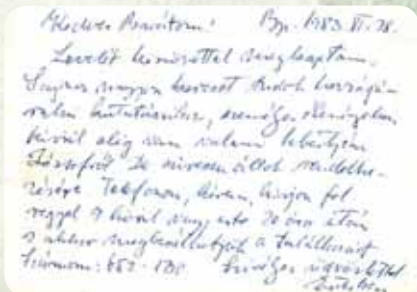 Kedves Barátom! Bp. 1983. VI. 28.
Levelét köszönettel megkaptam.
Sajnos nagyon keveset tudok hozzájá-
rulni kutatásaihoz, személyes
kívül alig van valami
Józsefről. De szívesen állok rendelke-
zésére. Telefonon, kérem, hívjon fel
reggel 9 óráig vagy este 20 óra után
s akkor megbeszélhetjük a találkozást
Számom: 652- Szívélyes üdvözlettel